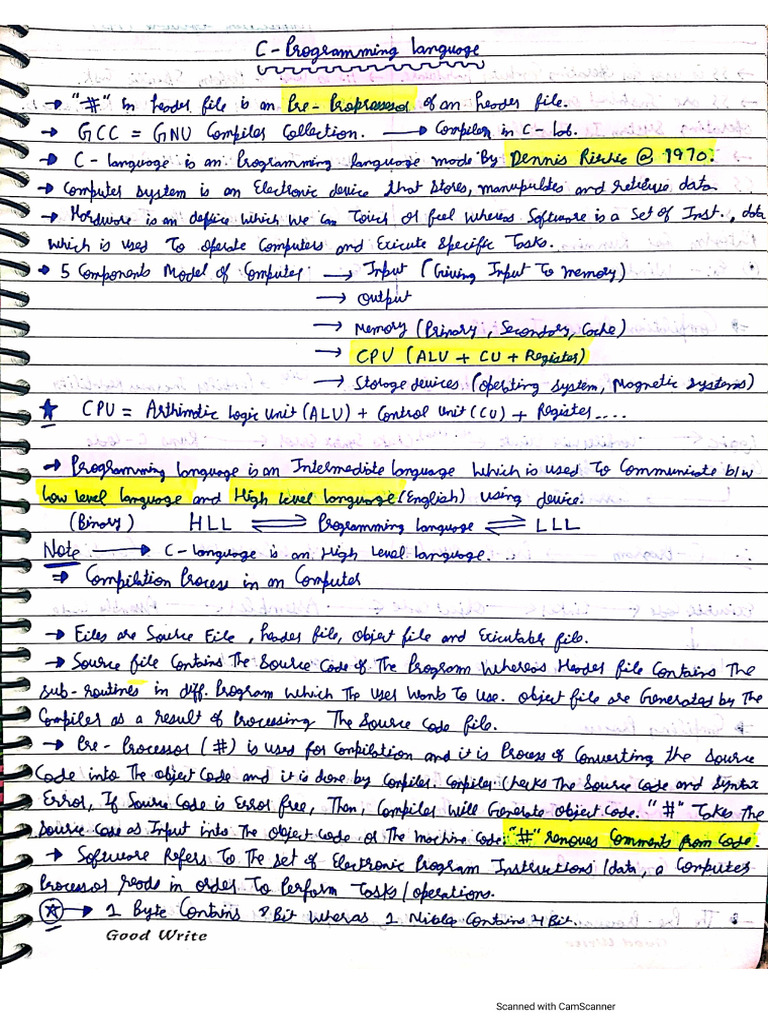 C-Programming language
→ "#" In header file is an Pre-Proprassor of an header file.
→ GCC = GNU Compiler Collection. → Compiler in C-lab.
→ C-language is an Programming language made By Dennis Ritchie @ 1970.
→ Computer system is an Electronic device that stores, manupuldes and retrieve data
→ Hardware is an define which We Can Touch or feel Whereas Software is a Set of Inst., data
Which is used To operate Computers and Exicute Specific Tasks.
→ 5 Components Model of Computer → Input (Giving Input To memory)
→ Output
→ Memory (Primary, Secondary, Cache)
→ CPU (ALU + CU + Register)
→ Storage devices (Operating System, Magnetic Systems)
★ CPU = Arthimdic Logic Unit (ALU) + Control Unit (CU) + Register....
→ Programming language is an Intermediate language Which is used To Communicate b/w
low level language and High level language (English) using device.
(Binary) HLL ⇌ Programming language ⇌ LLL
Note → C-language is an High Level language.
⇒ Compilation Process in an Computer
→ Files are Source File, header file, object file and Exicutable file.
→ Source file Contains The Source Code of The Program Whereas Header file Contains The
Sub-routines in diff. Program Which The User Wants To Use. Object file are Generated by The
Compiler as a result of Processing The Source Code file.
→ Pre-Processor (#) is used for Compilation and it is Process of Converting the Source
Code into The object Code and it is done by Compiler. Compiler Checks The Source Code and Syntax
Error, If Source Code is Error free, Then, Compiler Will Generate object Code. "#" Takes the
Source Code as Input into The object Code or The machine Code. "#" removes Comments from Code.
→ Software Refers To The Set of Electronic Program Instructions/data, a Computer
Processor reads in order To Perform Tasks/operations.
★ → 1 Byte Contains 8 Bit Wheras 1 Nible Contains 4 Bit.
Good Write
Scanned with CamScanner